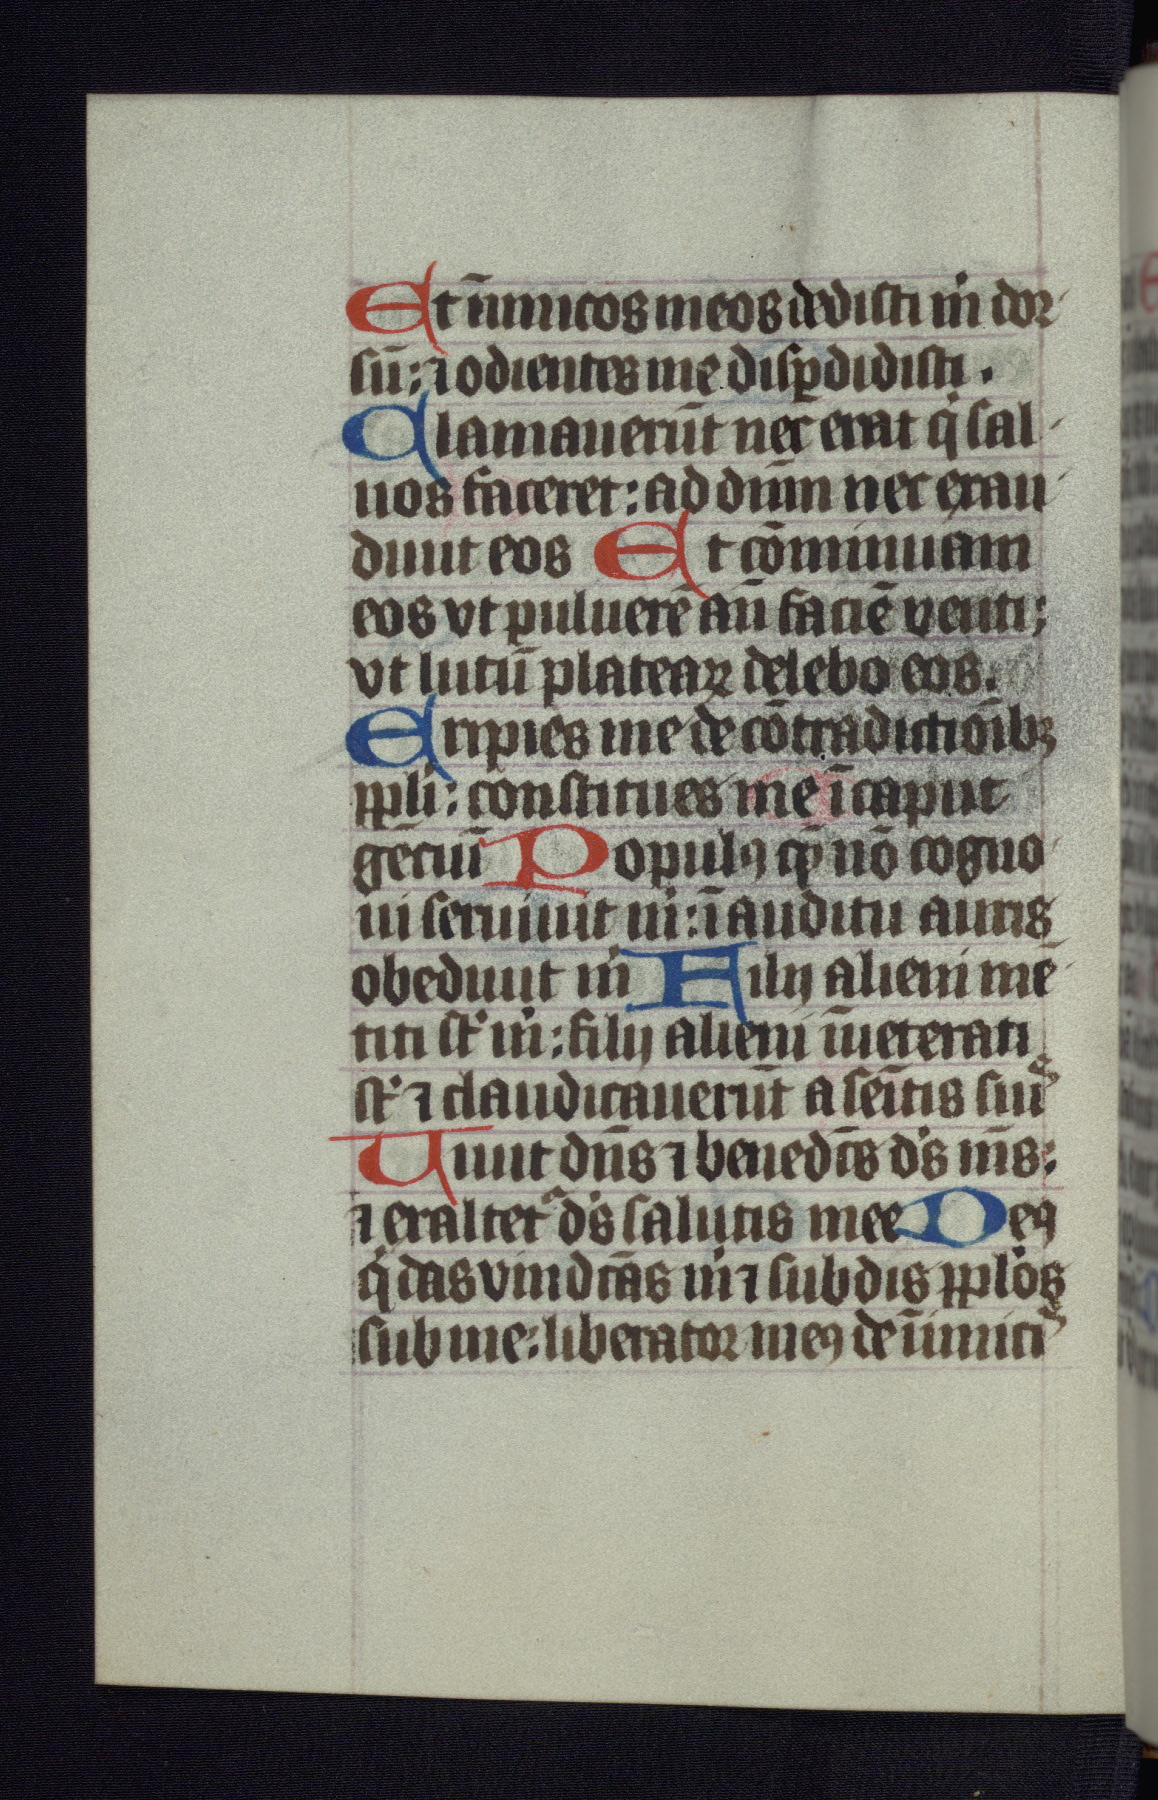 Et īimicos meos dedisti m̊ dor
sū: ⁊ odientes me disp̱didisti .
Clamauerūt nec erat q̊ sal
uos faceret: ad dn̄m nec exau
diuit eos Et cōminuam
eos vt puluerē an̄ faciē venti:
vt lutū plateaꝝ delebo eos.
Eripies me de cōtradictiōibꝫ
ppl̄i: constitues me ī caput
gēciū Populꝯ quē nō cogno
ui seruiuit m̊: ī auditu auris
obediuit m̊ Filij alieni mē
titi st̄ m̊: filij alieni īueterati
st̄ ⁊ claudicauerūt a sem̄tis suis
Uiuit dn̄s ⁊ benedc̄s d̄s m̄s:
⁊ exaltetᷣ d̄s salutis mee Deꝯ
q̊ das vindc̄as m̊ ⁊ subdis ppl̄os
sub me: liberator meꝯ de īimicis